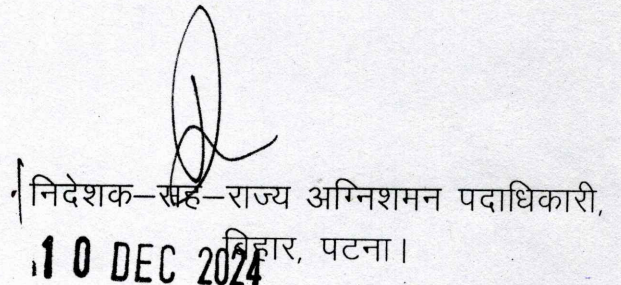 निदेशक–सह–राज्य अग्निशमन पदाधिकारी,
बिहार, पटना।
10 DEC 2024